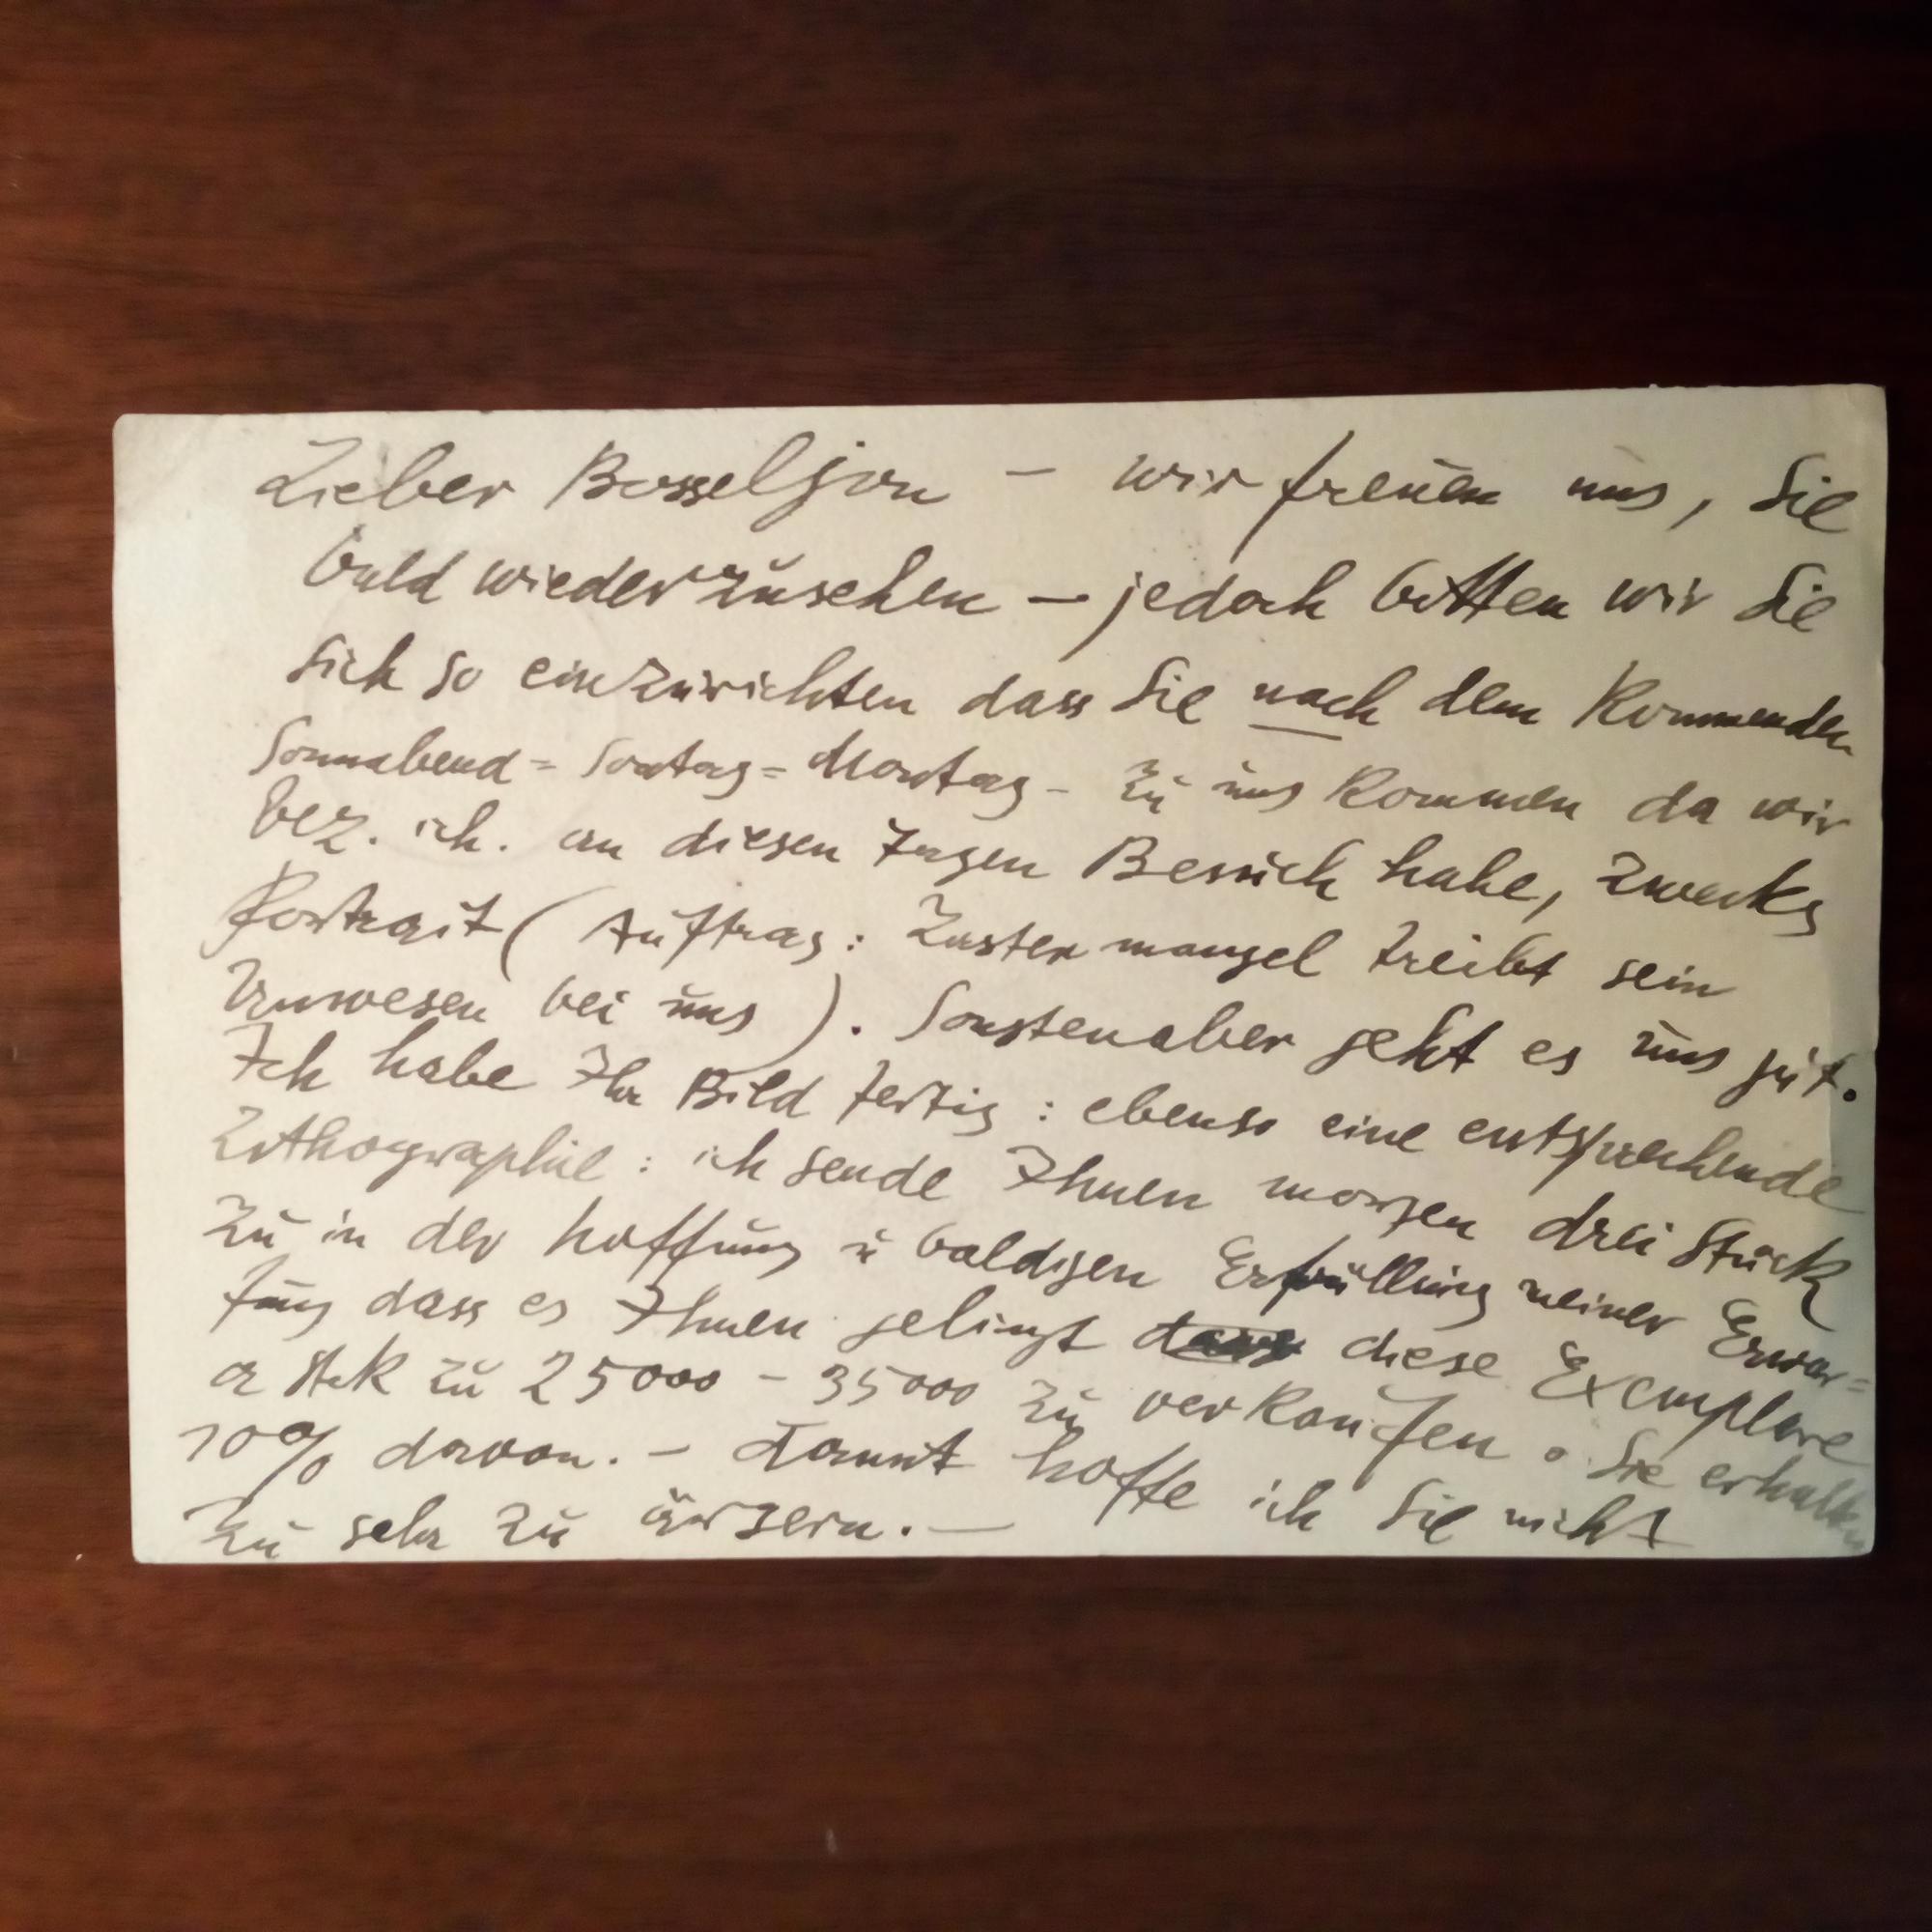 Lieber Bosseljon – wir freuen uns, Sie
bald wiederzusehen – jedoch bitten wir Sie
sich so einzurichten dass Sie nach dem Kommenden
Sonnabend = Sontag = Montag – zu uns Kommen da wir
bez. ich. an diesen Tagen Besuch habe, zwecks
Portrait (Auftrag: Zaster mangel treibt sein
Unwesen bei uns). Sonstenaber geht es uns gut.
Ich habe Ihr Bild fertig: ebenso eine entsprechende
Lithographie: ich sende Ihnen morgen drei Stück
zu in der hoffnung u baldigen Erfüllung meiner Erwar=
tung dass es Ihnen gelingt diese Exemplare
a Stck zu 25000 – 35000 zu verkaufen. Sie erhalten
10% davon. – damit hoffe ich Sie nicht
zu sehr zu ärgern. –